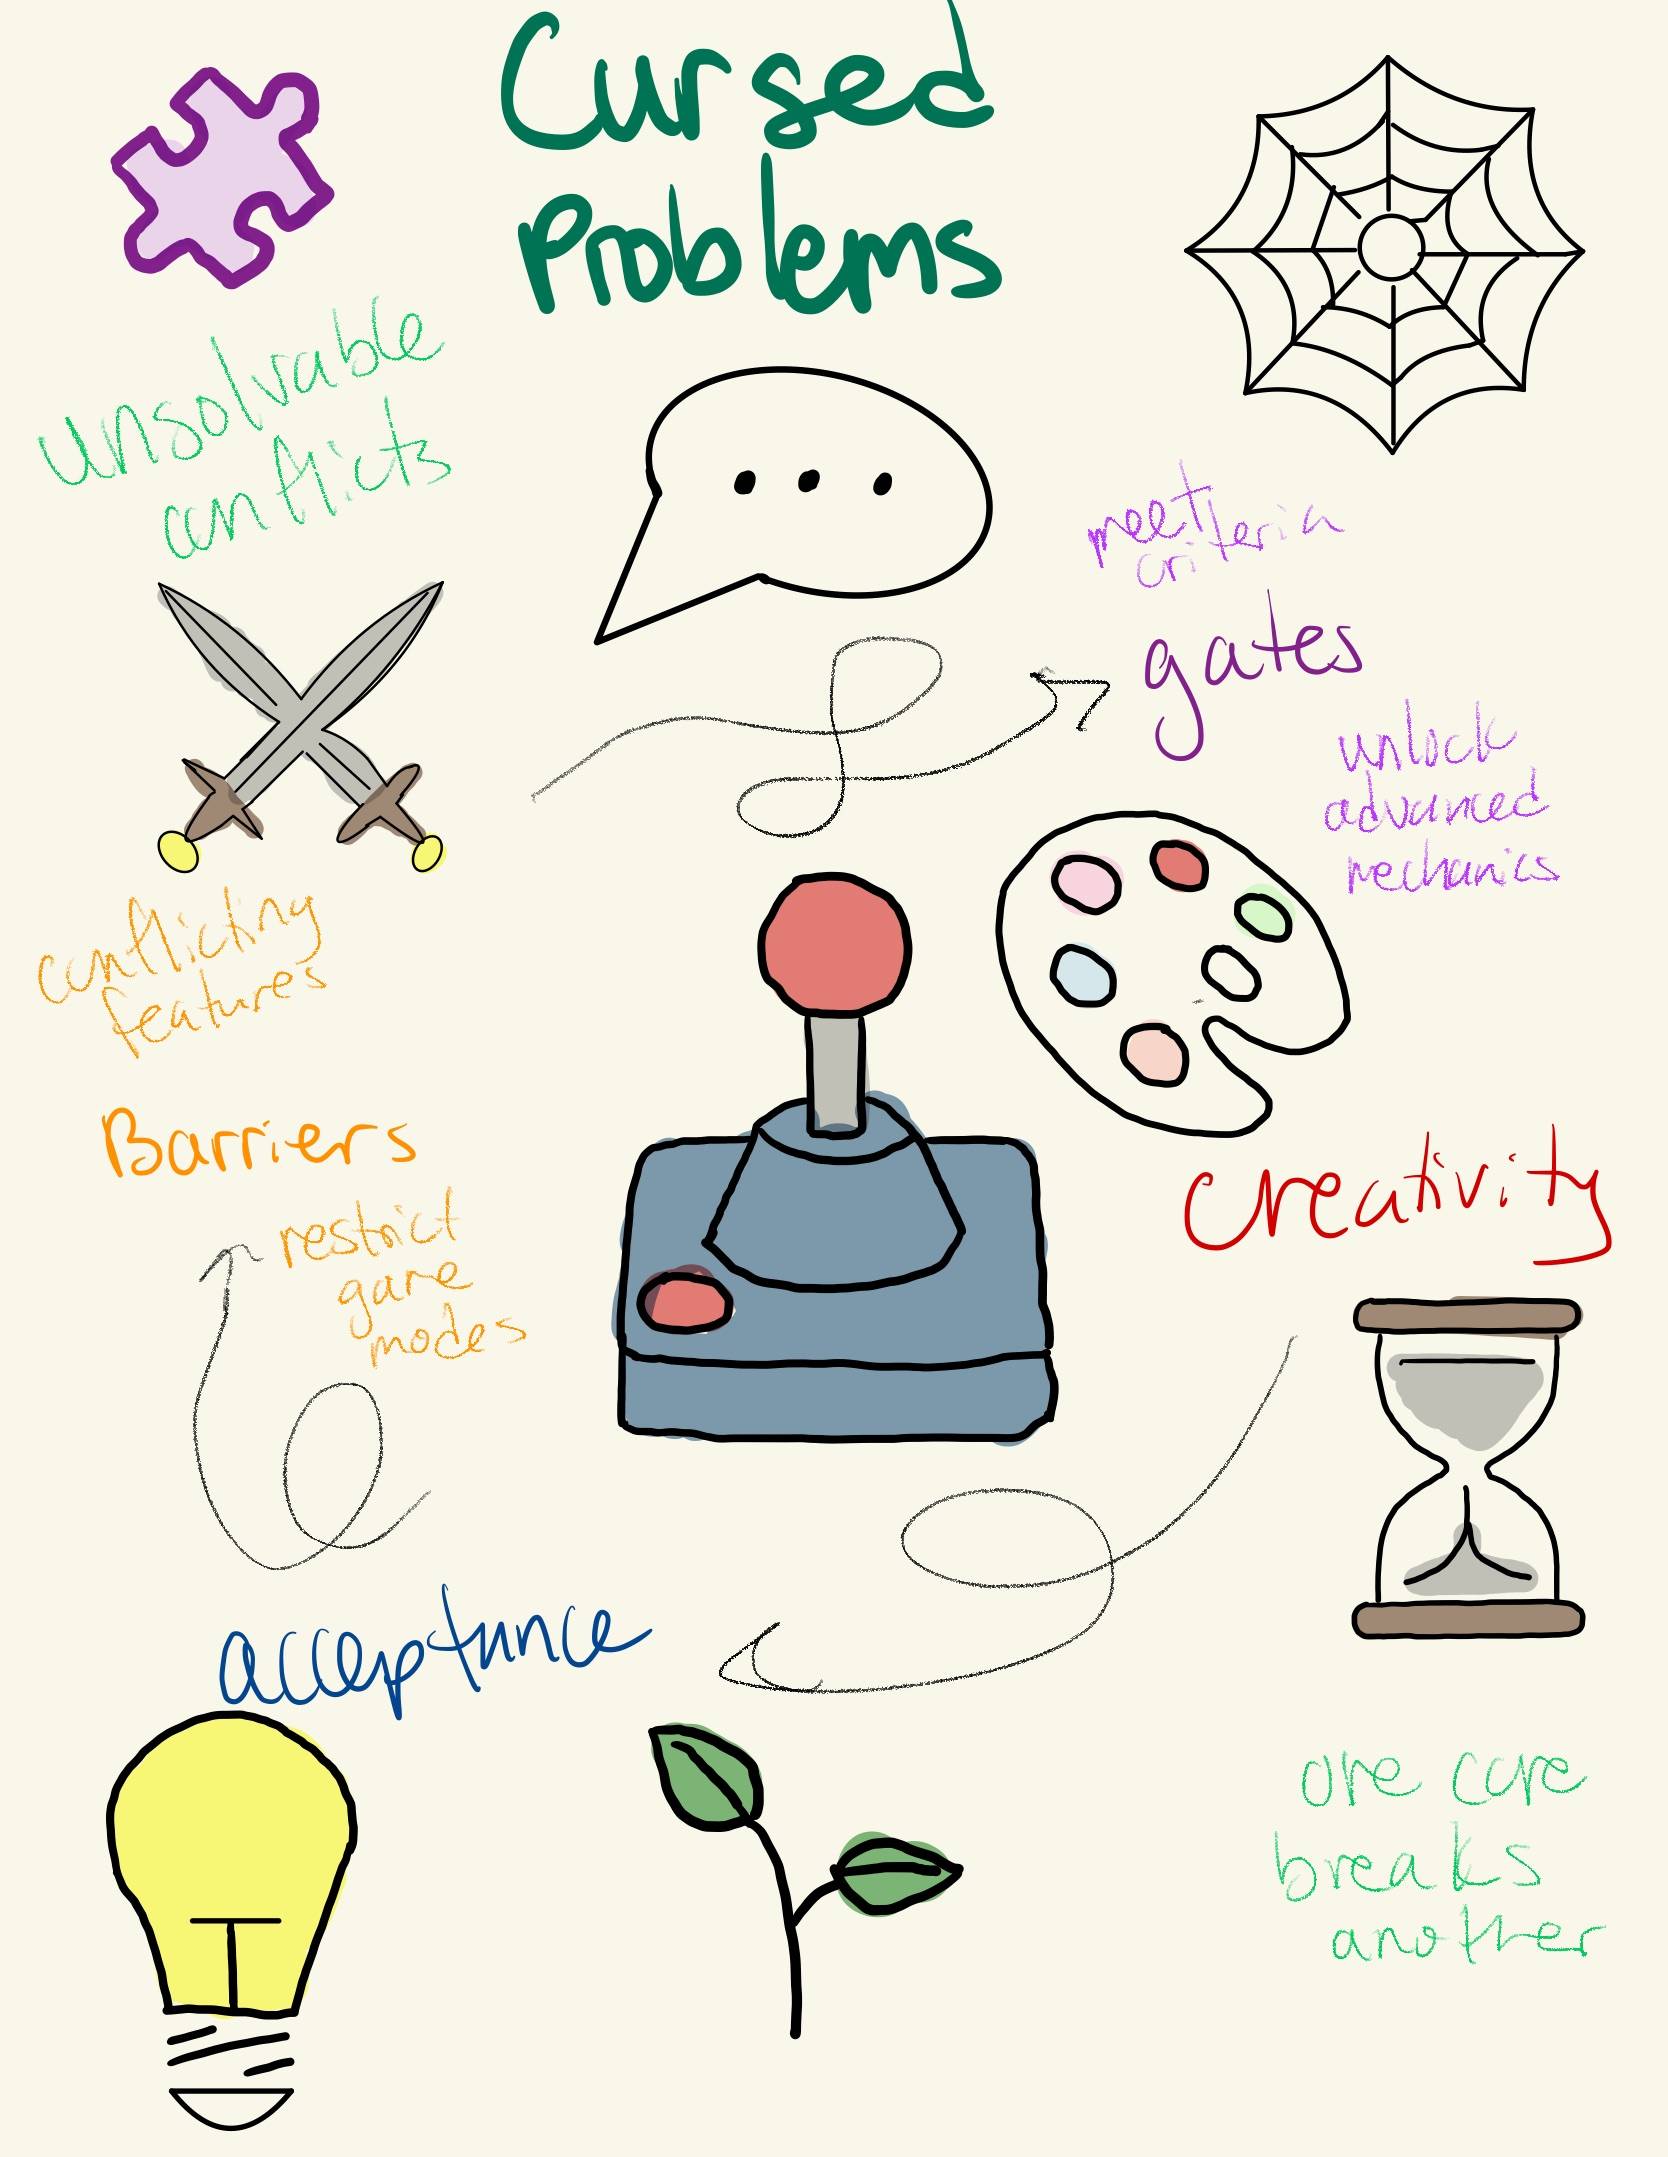 Cursed
Problems
unsolvable
conflicts
meet
criteria
gates
unlock
advanced
mechanics
conflicting
features
Barriers
restrict
game
modes
creativity
acceptance
one core
breaks
another